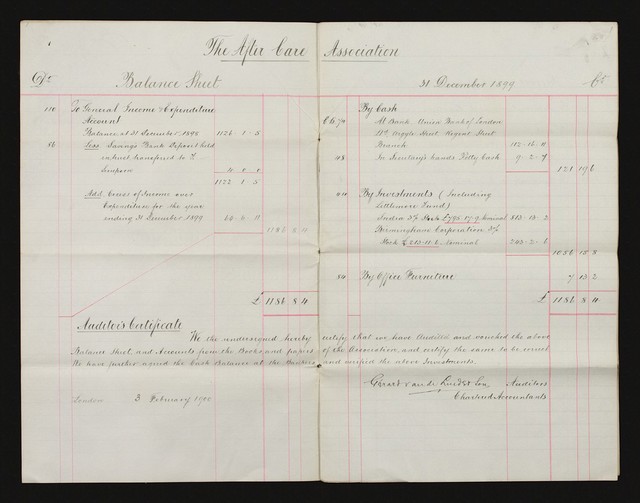 The After Care Association
Dr Balance Sheet 31 December 1899 Cr
110 To General Income & Expenditure
Account
Balance at 31 December 1898 1126 - 1 - 5
86 Less Savings Bank Deposit held
transferred to
Simpson 4
1122 - 1 - 5
Add Excess of Income over
Expenditure for the year
ending 31 December 1899
1186 8 4
£ 1186 8 4
By Cash
At Bank Union Bank of London
Argyle Street Regent Street
Branch 112 - 16
48 In Secretary's hands Petty Cash 9 - 2 - 7
121 19
By Investments (Including
Littlemore Fund)
India 3% Stock Nominal 813 - 13 - 2
Birmingham Corporation 3%
Stock £ 212 - 11 - 6 Nominal 243 - 2 - 6
1056 15 8
84 By Office Furniture 7 13 2
£ 1186 8 4
Auditor's Certificate
We the undersigned hereby certify that we have Audited and vouched the above
Balance Sheet, and Accounts from the Books and papers of the Association, and certify the same to be correct
We have further agreed the Cash Balance at the Bankers and verified the above Investments.
Gerard van de Linde & Son Auditors
Chartered Accountants
London 3 February 1900